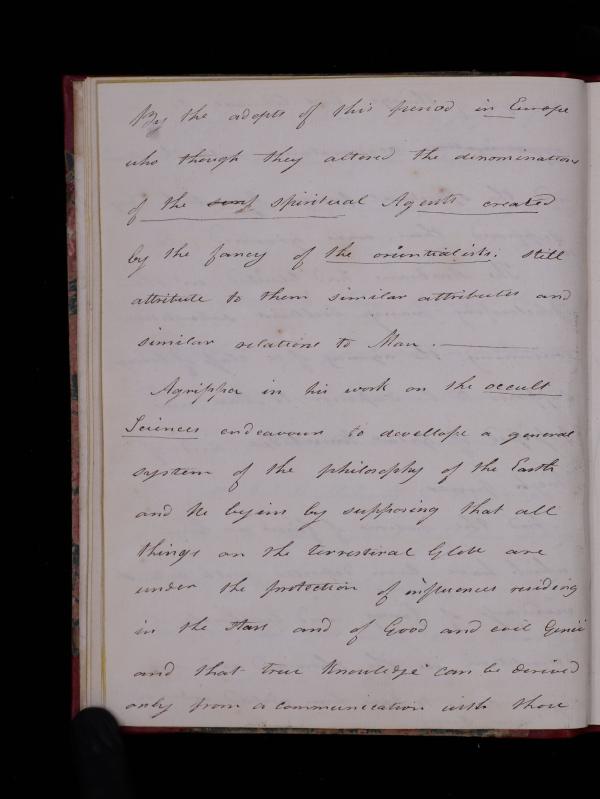 By the adepts of this period in Europe
who though they altered the denominations
of the spiritual Agents created
by the fancy of the orientialists. still
attribute to them similar attributes and
similar relations to Man. ———
Agrippa in his work on the occult
Sciences endeavours to devellope a general
system of the philosophy of the Earth
and he begins by supposing that all
things on the terrestiral Globe are
under the protection of influences residing
in the stars and of Good and evil Genii
and that true Knowledge can be derived
only from a communication with those